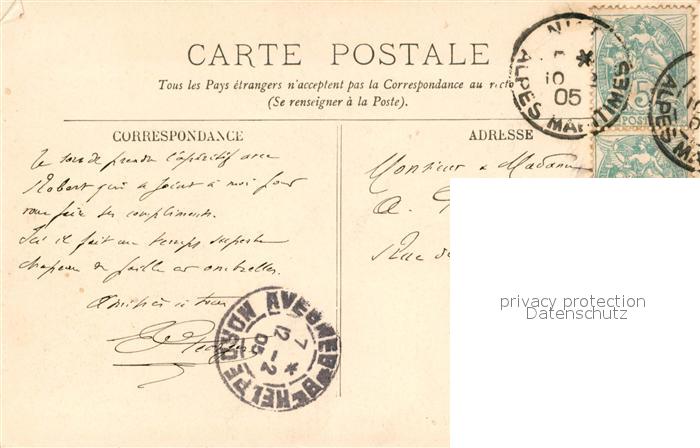 CARTE POSTALE
Tous les Pays étrangers n'acceptent pas la Correspondance au recto
(Se renseigner à la Poste).
CORRESPONDANCE
ADRESSE
Je sors de prendre l'apéritif avec
Robert qui se joint à moi pour
vous faire ses compliments.
Ici il fait un temps superbe
chapeau de paille et ombrelles.
Amitiés à tous
Monsieur & Madame
A.
Rue de
ALPES MARITIMES
05
5
AVESNES-S-HELPE
NORD
7
12-2
05
privacy protection
Datenschutz